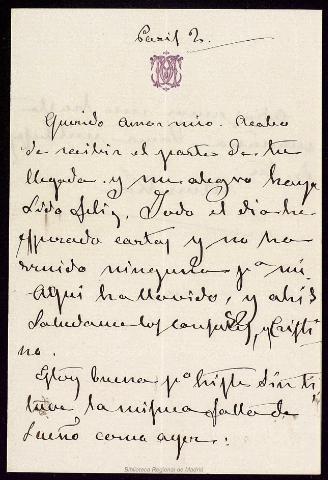 Paris 2.
Querido amor mio. Acabo
de recibir el parte de tu
llegada. y me alegro haya
sido feliz, Todo el dia he
esperado cartas y no ha
venido ninguna pª mi.
Aqui ha llovido, y ahi?
Saludame los Sres, y Cristi
no.
Estoy buena pª triste sin ti
tuve la misma falta de
sueño como ayer.
Biblioteca Regional de Madrid